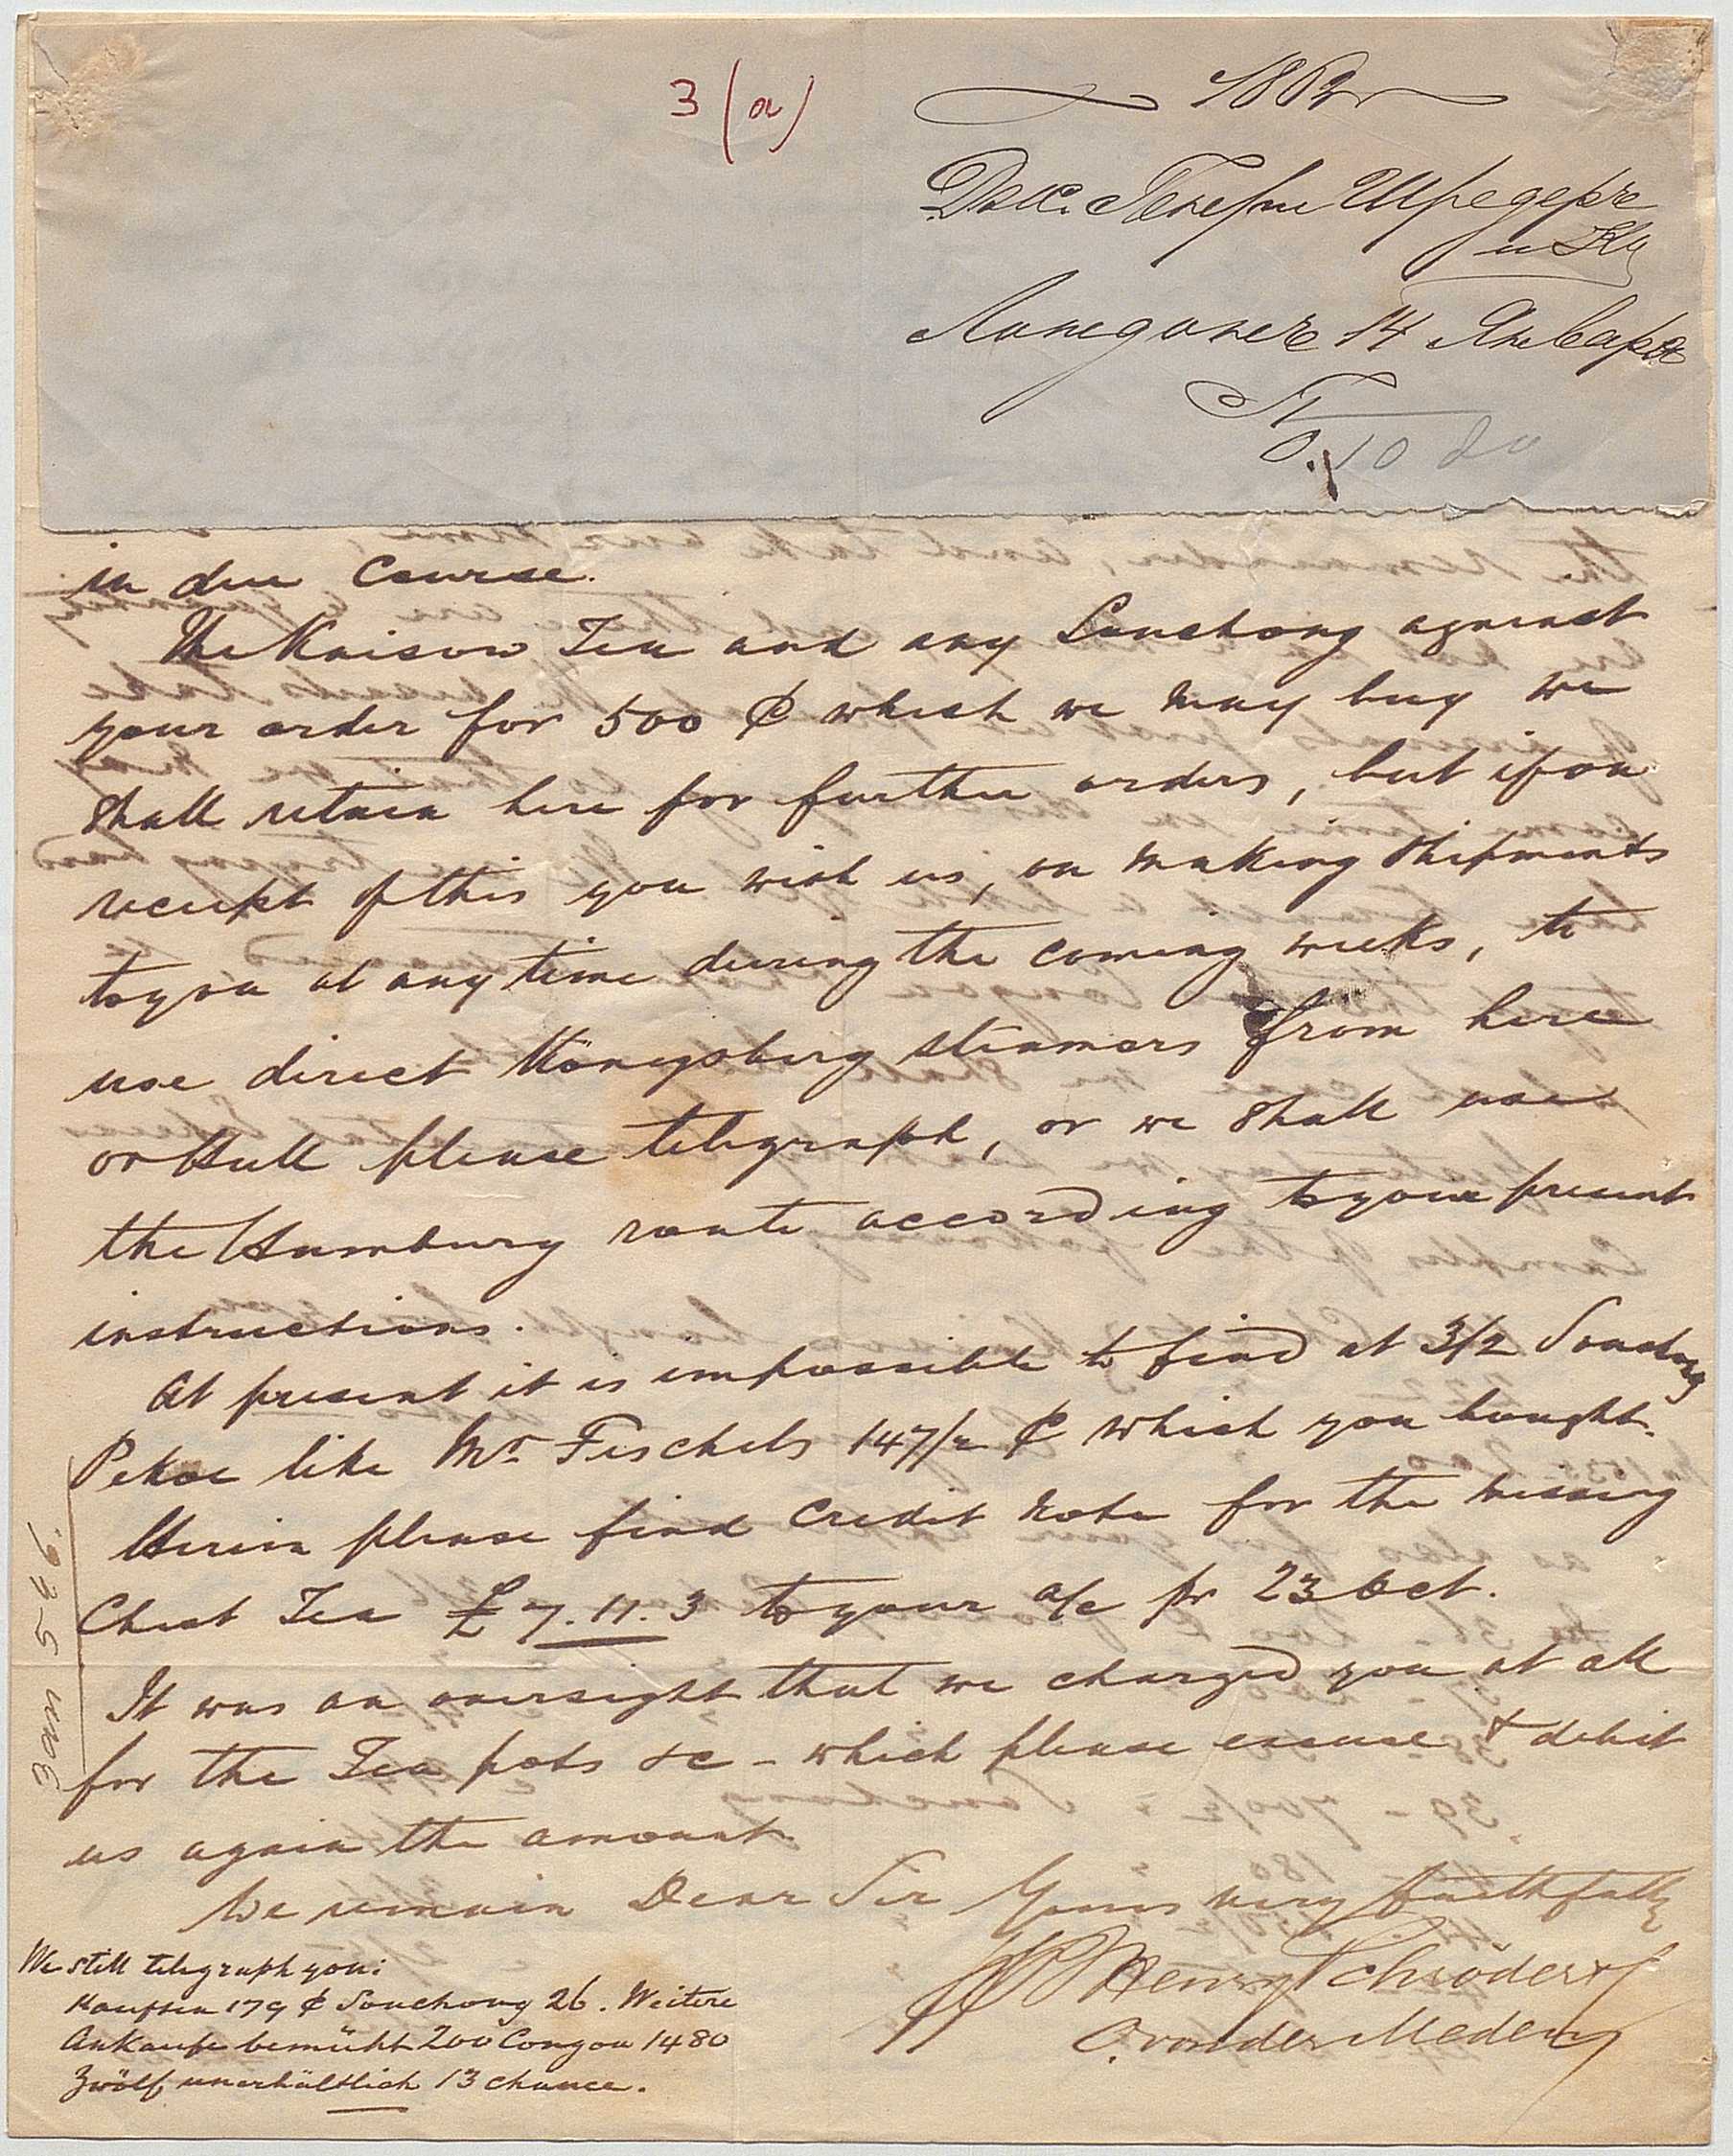 3 (a)
1862
Дж. Генри Шредеръ
и Ко
Лондонъ 14 Января
St
O. 10 do
in due Course.
The Kaisow Tea and any Souchong against
your order for 500 ₵ which we may buy we
shall retain here for further orders, but if on
receipt of this you wish us, on making shipments
to you at any time during the coming weeks, to
use direct Königsburg steamers from here
or Hull please telegraph, or we shall use
the Hamburg route according to your present
instructions.
At present it is impossible to find at 3/2 Souchong
Pekoe like Mr Fischels 147/2 ₵ which you bought.
Herein please find Credit Note for the missing
Chest Tea £ 7.11.3 to your a/c pr 23 Oct.
It was an oversight that we charged you at all
for the Tea pots &c - which please excuse & debit
us again the amount.
We remain Dear Sir Yours very faithfully
Henry Schröder & C
O. von der Meden
We still telegraph you:
Kauften 179 ₵ Souchong 26. Weitere
Ankaufe bemüht 200 Congou 1480
Zwölf unerhältlich 13 chance.